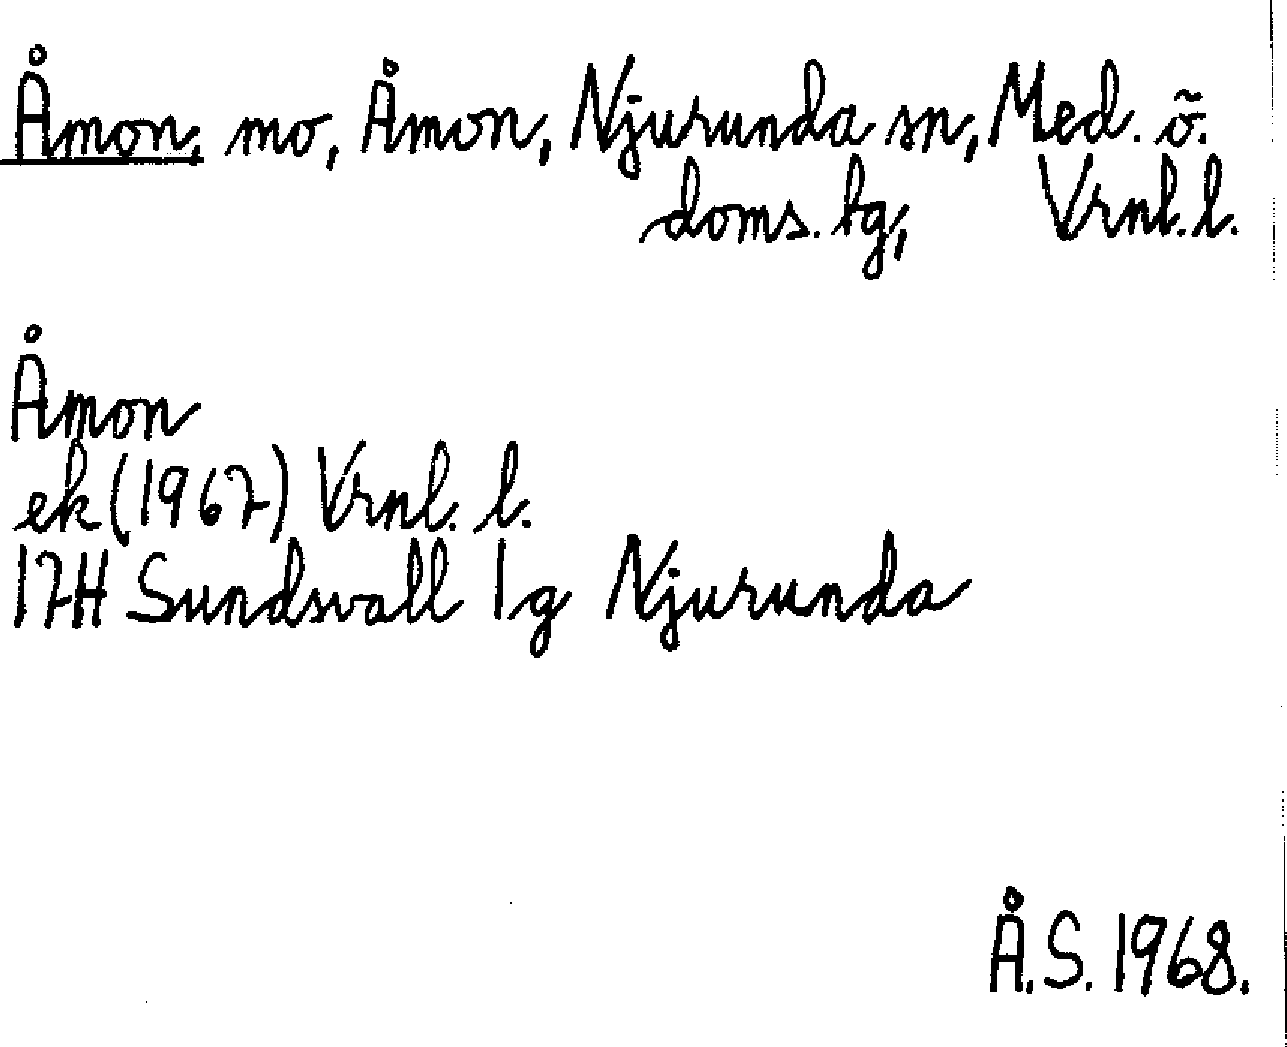 Åmon, mo, Åmon, Njurunda sn, Med. ö.
doms. tg, Vrnl. l.
Åmon
ek (1967) Vrnl. l.
17H Sundsvall 1g Njurunda
Å.S. 1968.